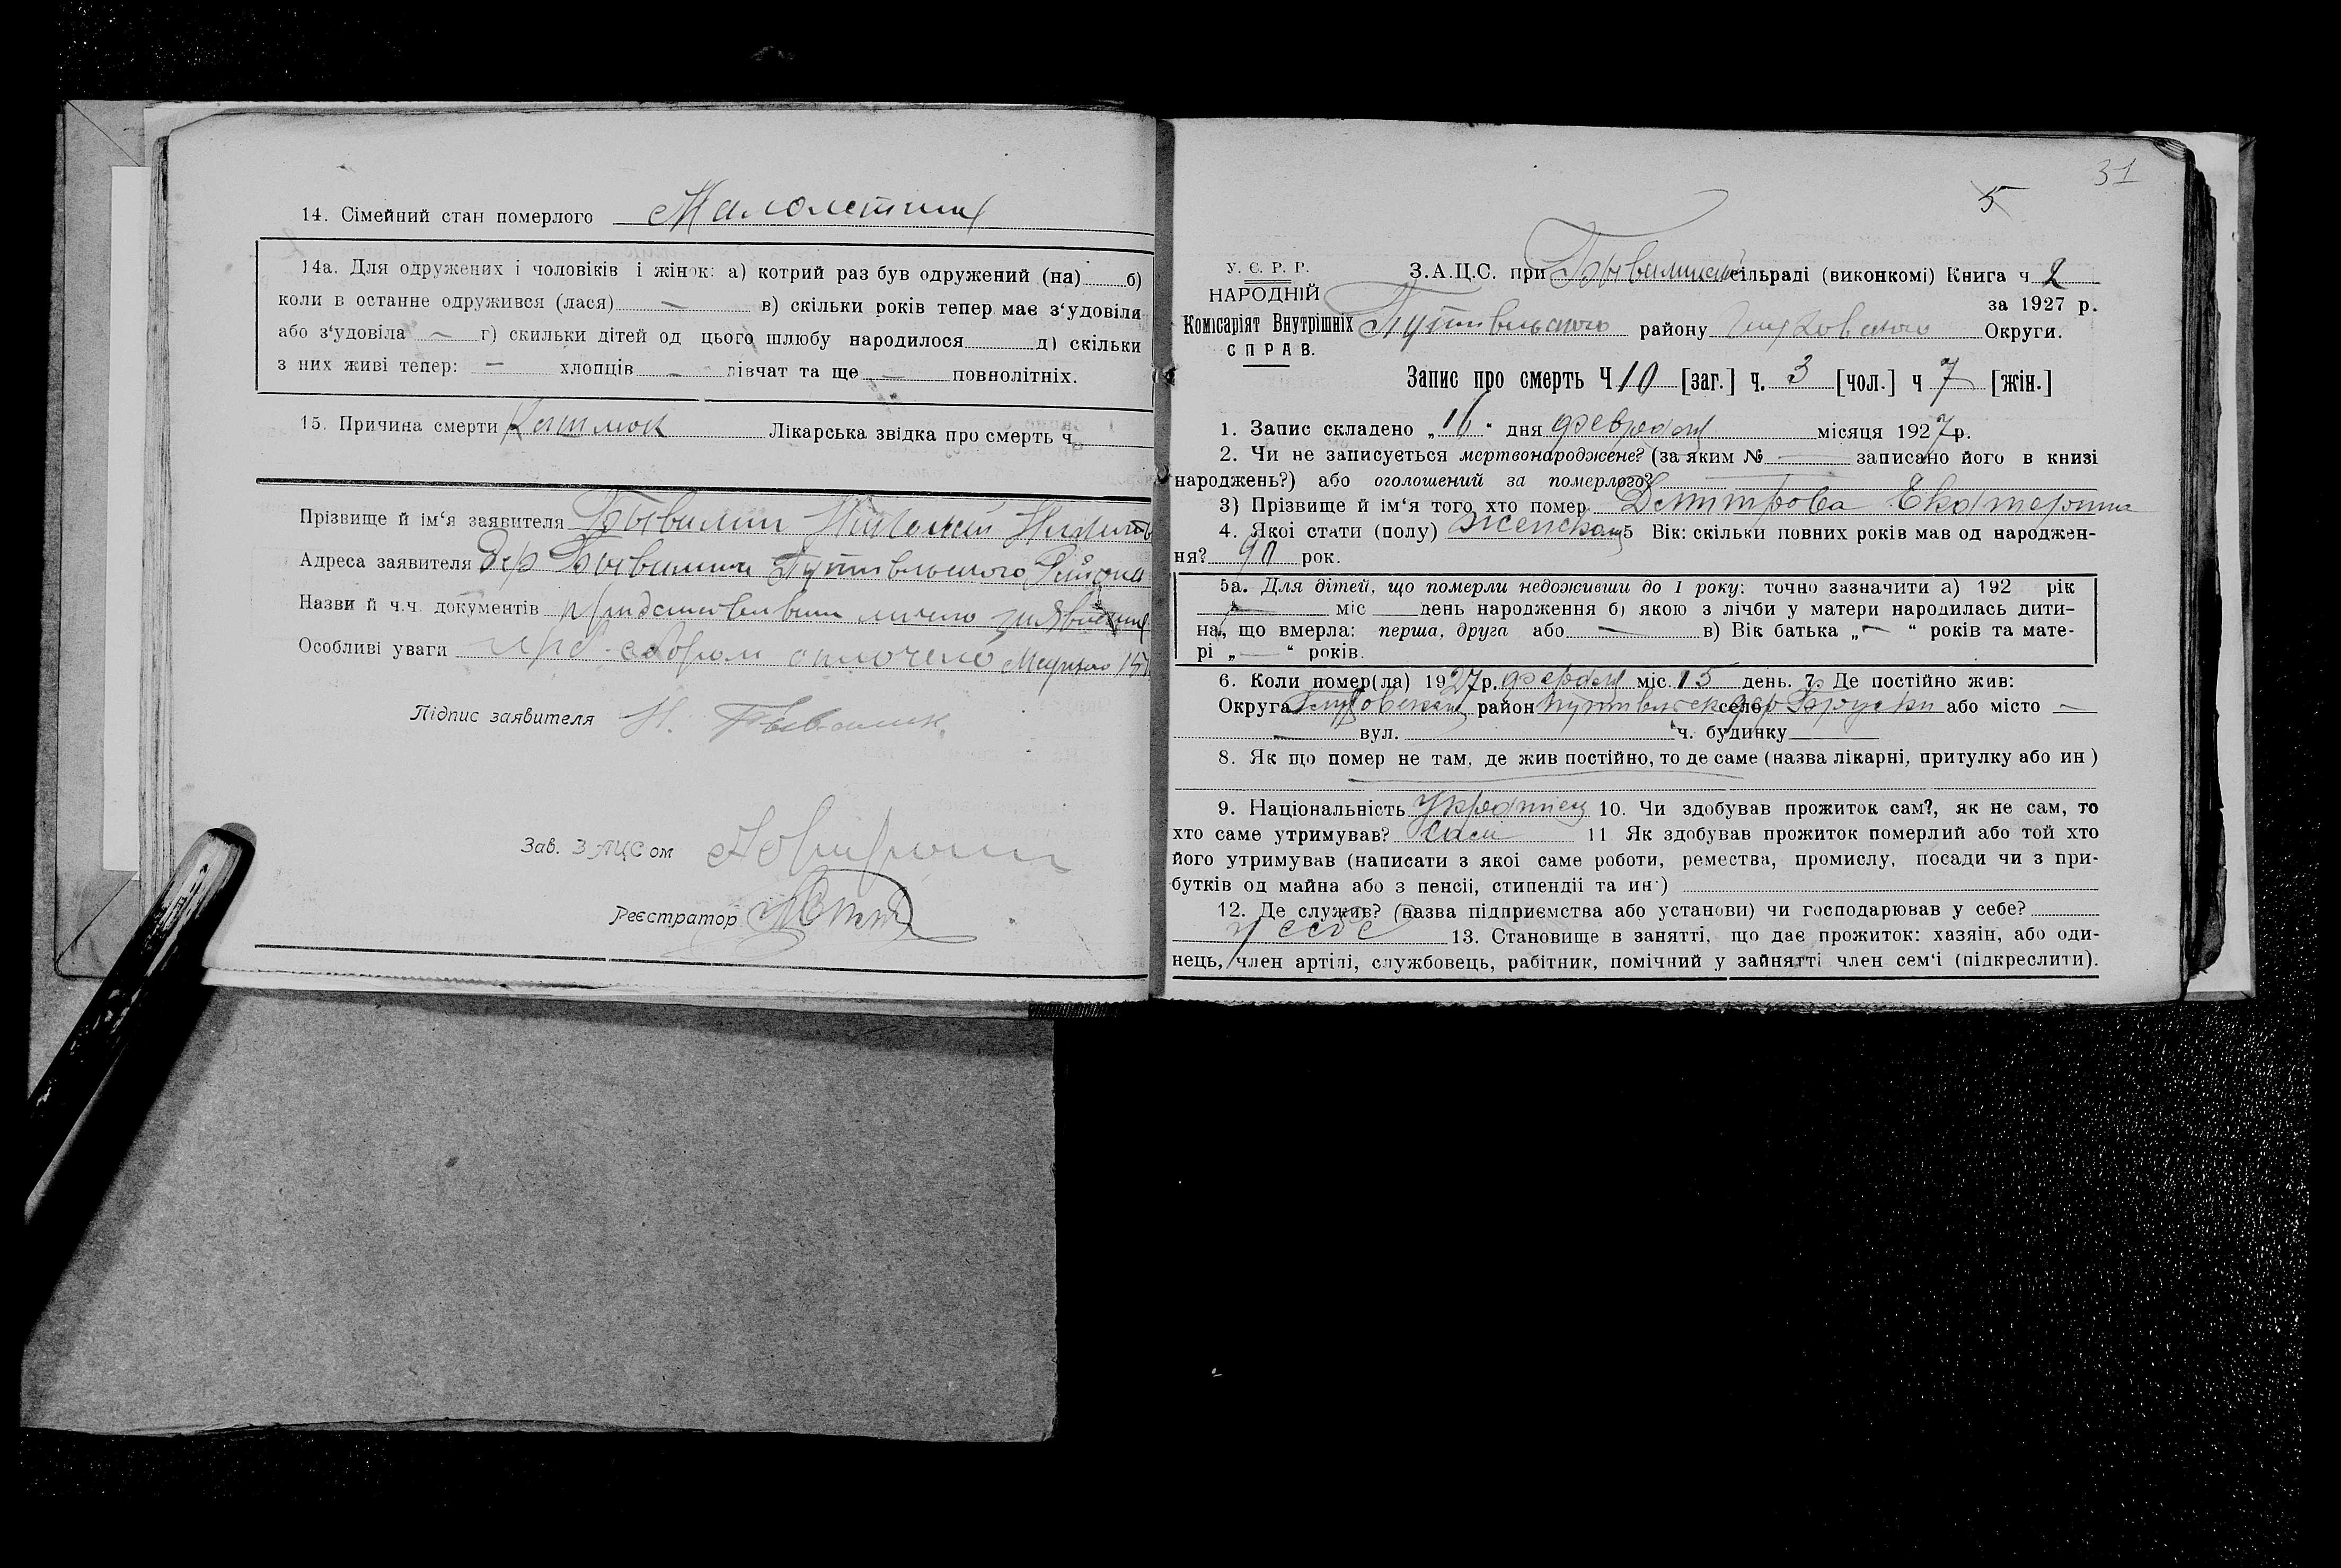 14. Сімейний стан померлого Малолетний
14а. Для одружених і чоловіків і жінок: а) котрий раз був одружений (на) б)
коли в останне одружився (лася) — в) скільки років тепер має з‘удовіли
або з‘удовіла — г) скильки дітей од цього шлюбу народилося д) скільки
з них живі тепер: — хлопців - дівчат та ще — повнолітніх.
15. Причина смерти Лікарська звідка про смерть ч.
Прізвище й ім‘я заявителя Бывалин
Адреса заявителя дер Бывалина Путивльского Района
Назви й ч.ч. документів
Особливі уваги
Підпис заявителя Н. Бывалин
Зав. ЗАЦСом
Реєстратор
31
5
У. С. Р. Р.
НАРОДНІЙ
Комісаріят Внутрішніх
СПРАВ.
З.А.Ц.С. при сільраді (виконкомі) Книга ч 2
за 1927 р.
Путивльского району Глуховского Округи.
Запис про смерть Ч 10 [заг.] ч. 3 [чол.] ч 7 [жін.]
1. Запис складено „16“ дня февраля місяця 1927р.
2. Чи не записується мертвонароджене? (за яким № — записано його в книзі
народжень?) або оголошений за померлого?
3) Прізвище й ім‘я того хто помер Дмитрова Екатерина
4. Якої стати (полу) женская 5 Вік: скільки повних років мав од народжен-
ня? 90 рок.
5а. Для дітей, що померли недоживши до 1 року: точно зазначити а) 192 рік
— міс день народження б) якою з лічби у матери народилась дити-
на, що вмерла: перша, друга або — в) Вік батька „—“ років та мате-
рі „—“ років.
6. Коли помер(ла) 1927р. февраля міс. 15 день. 7. Де постійно жив:
Округа Глуховская район Путивльск село дер Бруски або місто —
— вул. ч. будинку
8. Як що помер не там, де жив постійно, то де саме (назва лікарні, притулку або ин )
9. Національність Украинец 10. Чи здобував прожиток сам?, як не сам, то
хто саме утримував? сам 11 Як здобував прожиток померлий або той хто
його утримував (написати з якої саме роботи, ремества, промислу, посади чи з при-
бутків од майна або з пенсії, стипендії та ин·)
12. Де служив? (назва підприємства або установи) чи господарював у себе?
у себе 13. Становище в занятті, що дає прожиток: хазяїн, або оди-
нець, член артілі, службовець, рабітник, помічний у зайнятті член сем‘ї (підкреслити).